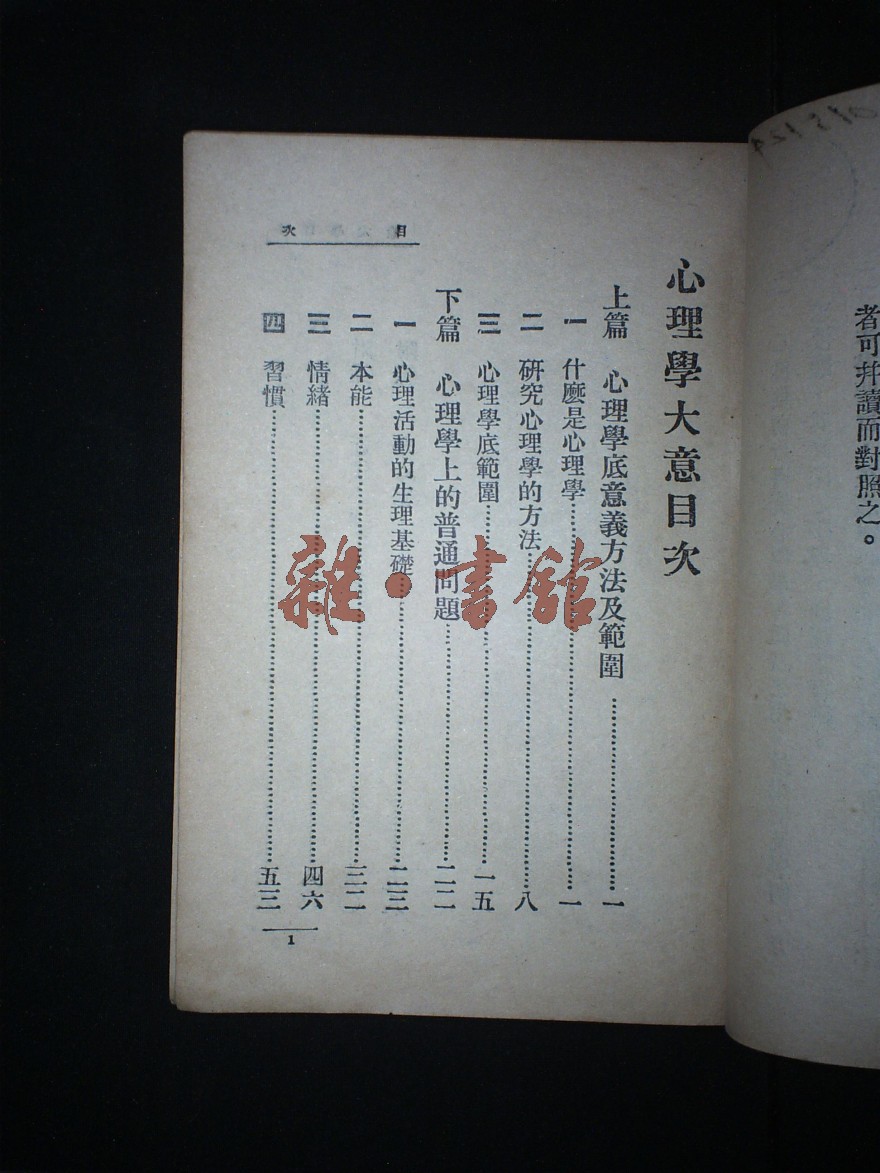 者可并讀而對照之。
目次
心理學大意目次
上篇 心理學底意義方法及範圍……一
一 什麽是心理學……一
二 研究心理學的方法……八
三 心理學底範圍……一五
下篇 心理學上的普通問題……二二
一 心理活動的生理基礎……二三
二 本能……三二
三 情緒……四六
四 習慣……五三
1
雜·書館